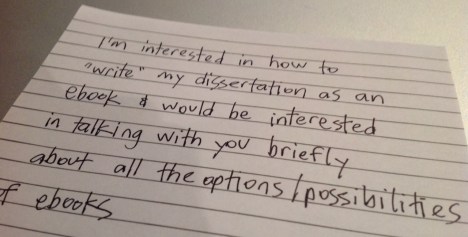 I'm interested in how to
"write" my dissertation as an
ebook & would be interested
in talking with you briefly
about all the options/possibilities
of ebooks